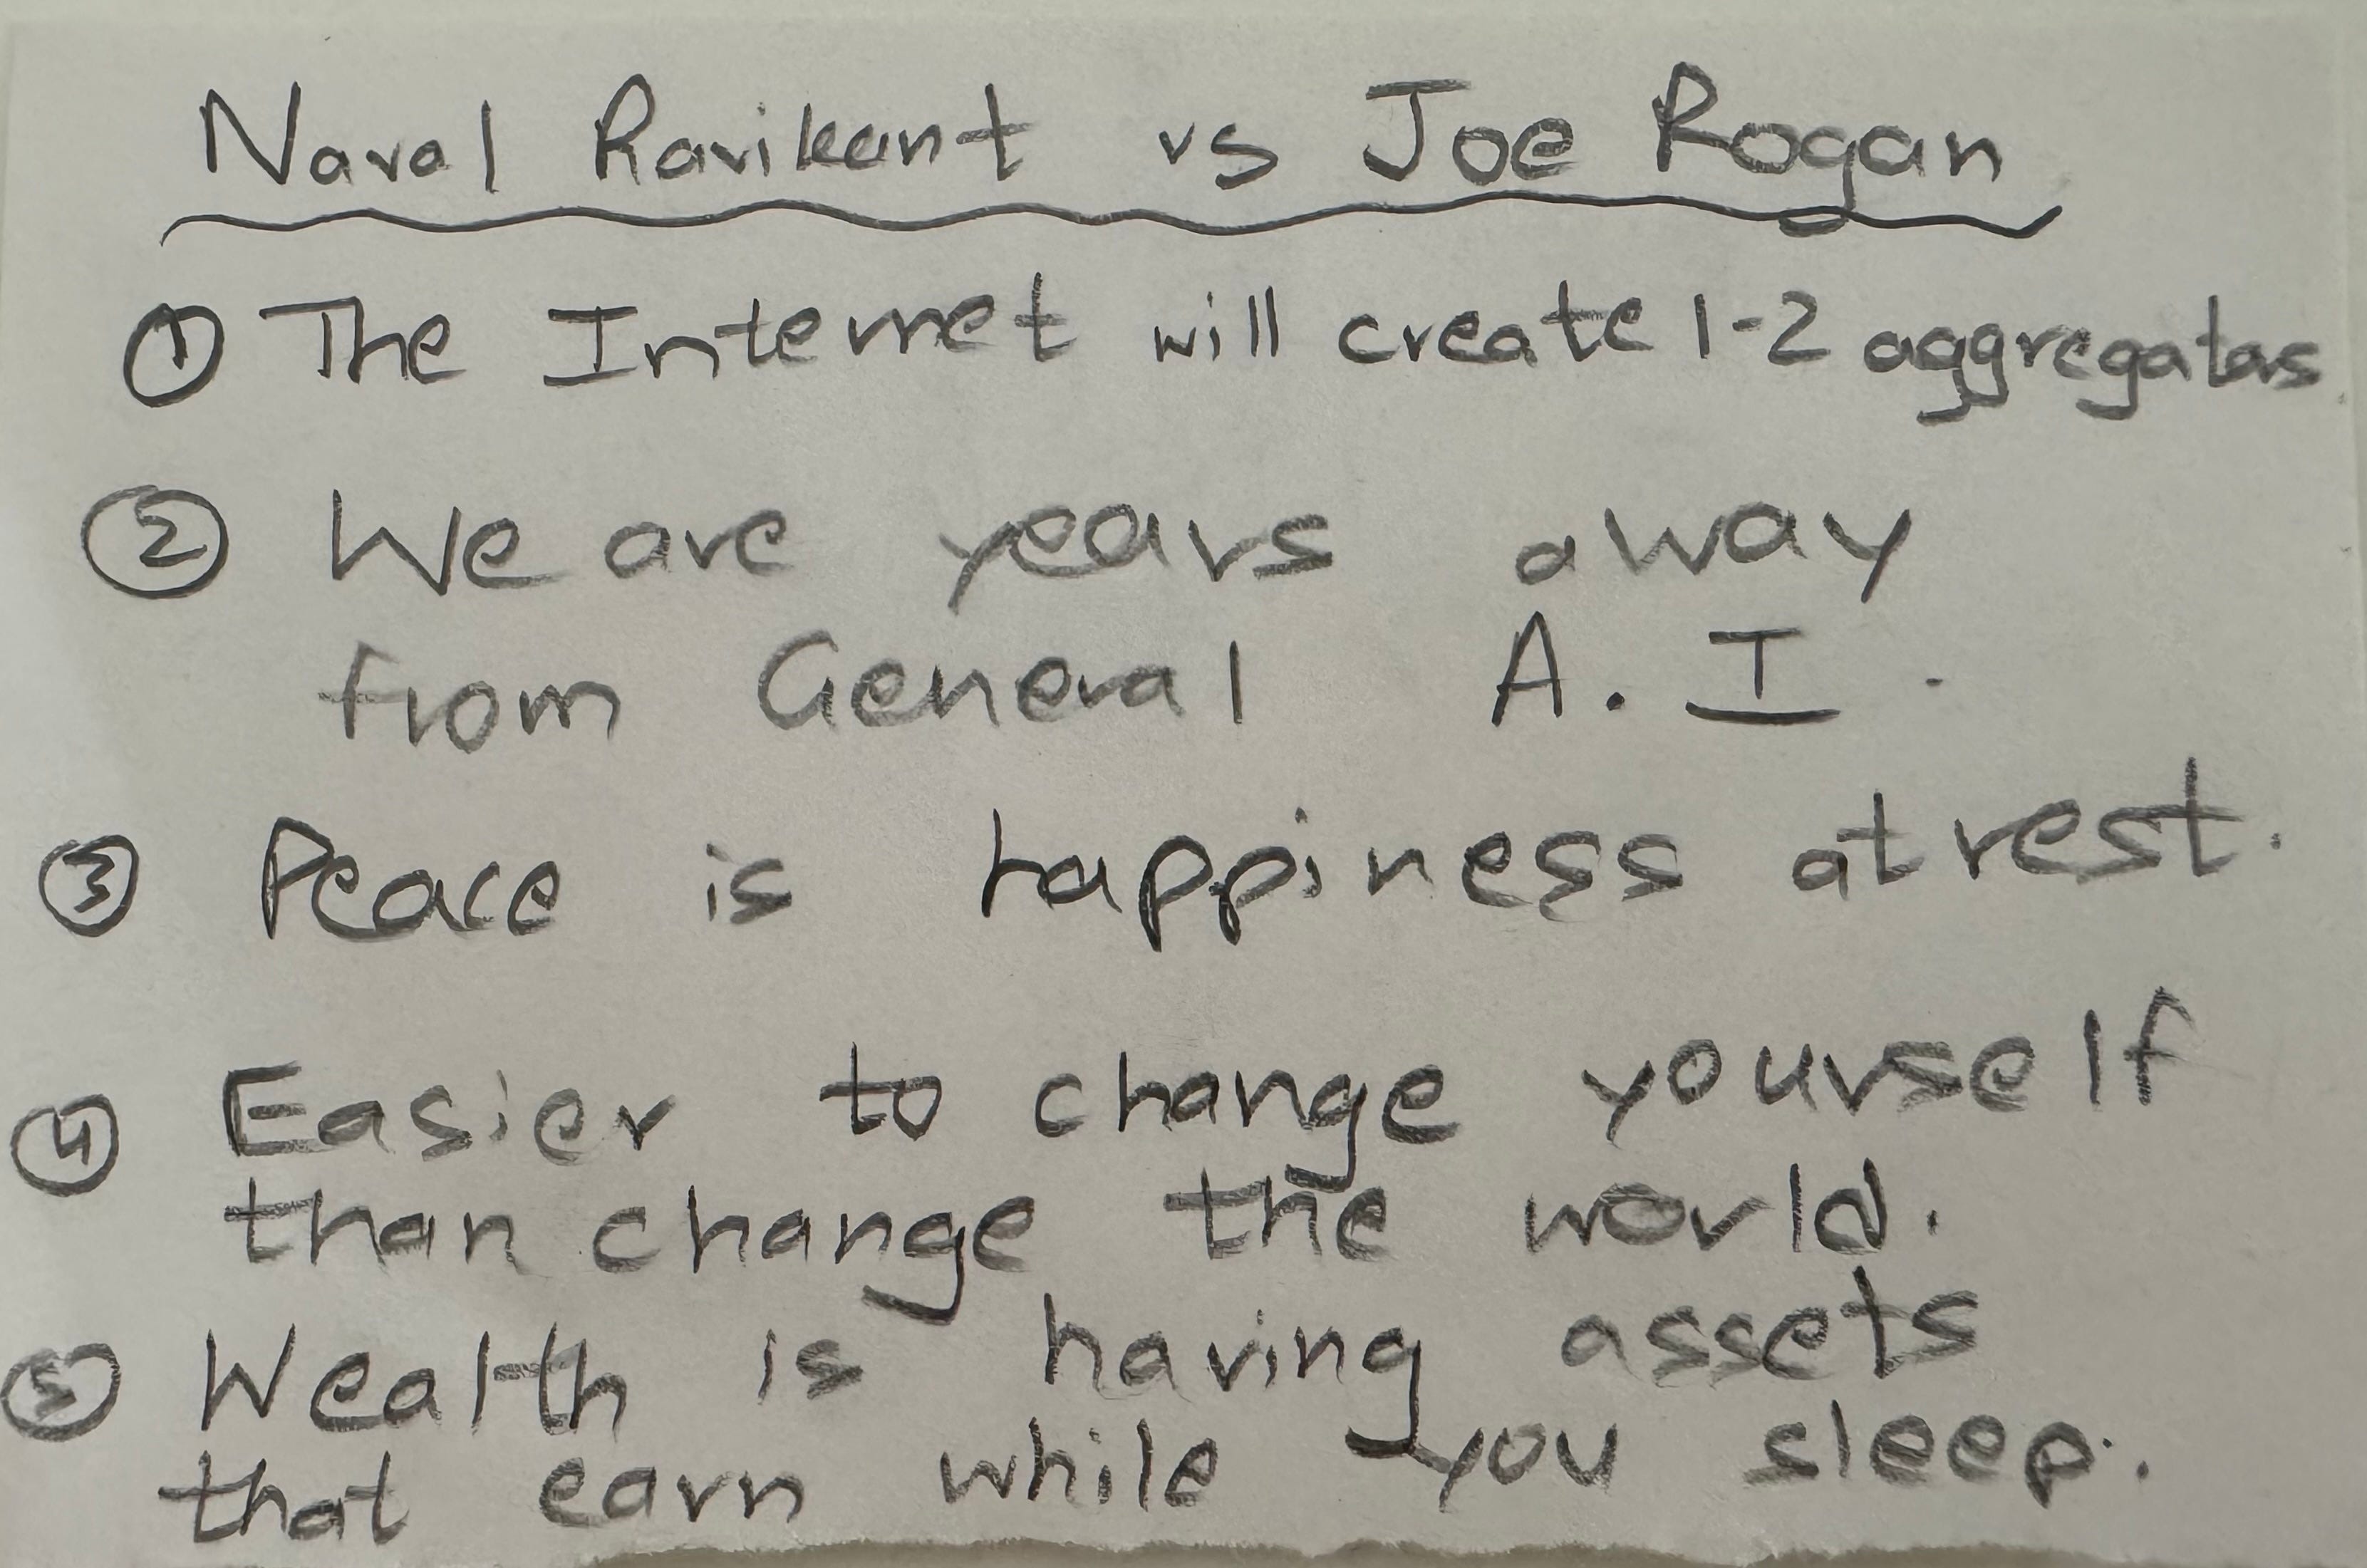 Naval Ravikant vs Joe Rogan
① The Internet will create 1-2 aggregatas
② We are years away
from General A.I.
③ Peace is happiness at rest.
④ Easier to change yourself
than change the world.
⑤ Wealth is having assets
that earn while you sleep.